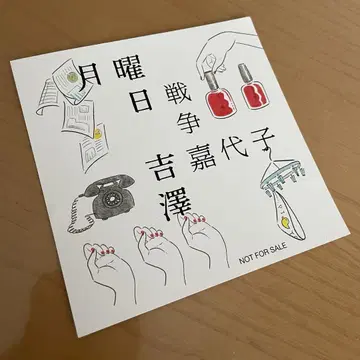 月曜日
戦争
吉澤
嘉代子
NOT FOR SALE